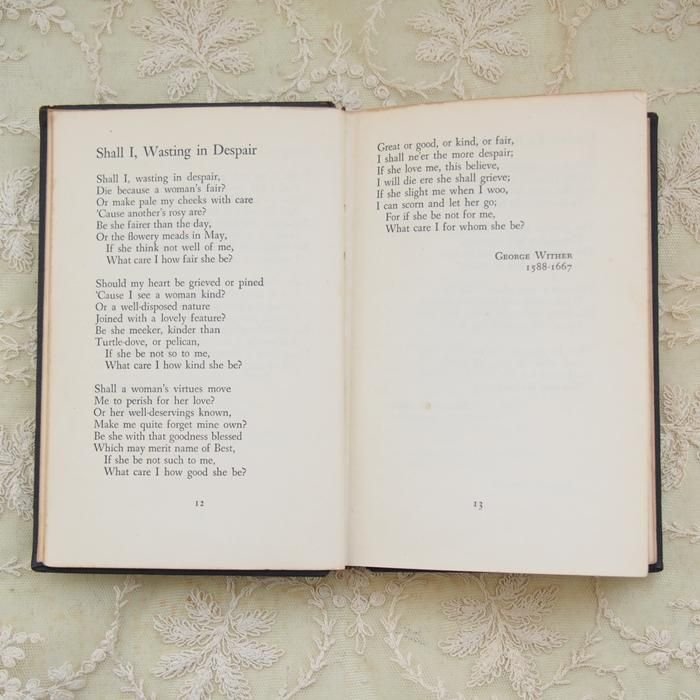 Shall I, Wasting in Despair
Shall I, wasting in despair,
Die because a woman's fair?
Or make pale my cheeks with care
'Cause another's rosy are?
Be she fairer than the day,
Or the flowery meads in May,
If she think not well of me,
What care I how fair she be?
Should my heart be grieved or pined
'Cause I see a woman kind?
Or a well-disposed nature
Joined with a lovely feature?
Be she meeker, kinder than
Turtle-dove, or pelican,
If she be not so to me,
What care I how kind she be?
Shall a woman's virtues move
Me to perish for her love?
Or her well-deservings known,
Make me quite forget mine own?
Be she with that goodness blessed
Which may merit name of Best,
If she be not such to me,
What care I how good she be?
12
Great or good, or kind, or fair,
I shall ne'er the more despair;
If she love me, this believe,
I will die ere she shall grieve;
If she slight me when I woo,
I can scorn and let her go;
For if she be not for me,
What care I for whom she be?
George Wither
1588-1667
13